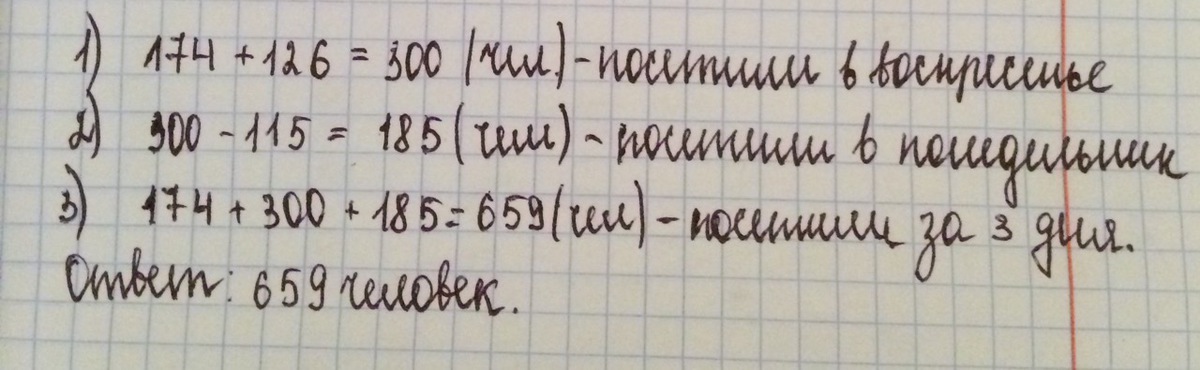 1) 174 + 126 = 300 (чел) - посетили в воскресенье
2) 300 - 115 = 185 (чел) - посетили в понедельник
3) 174 + 300 + 185 = 659 (чел) - посетили за 3 дня.
Ответ: 659 человек.